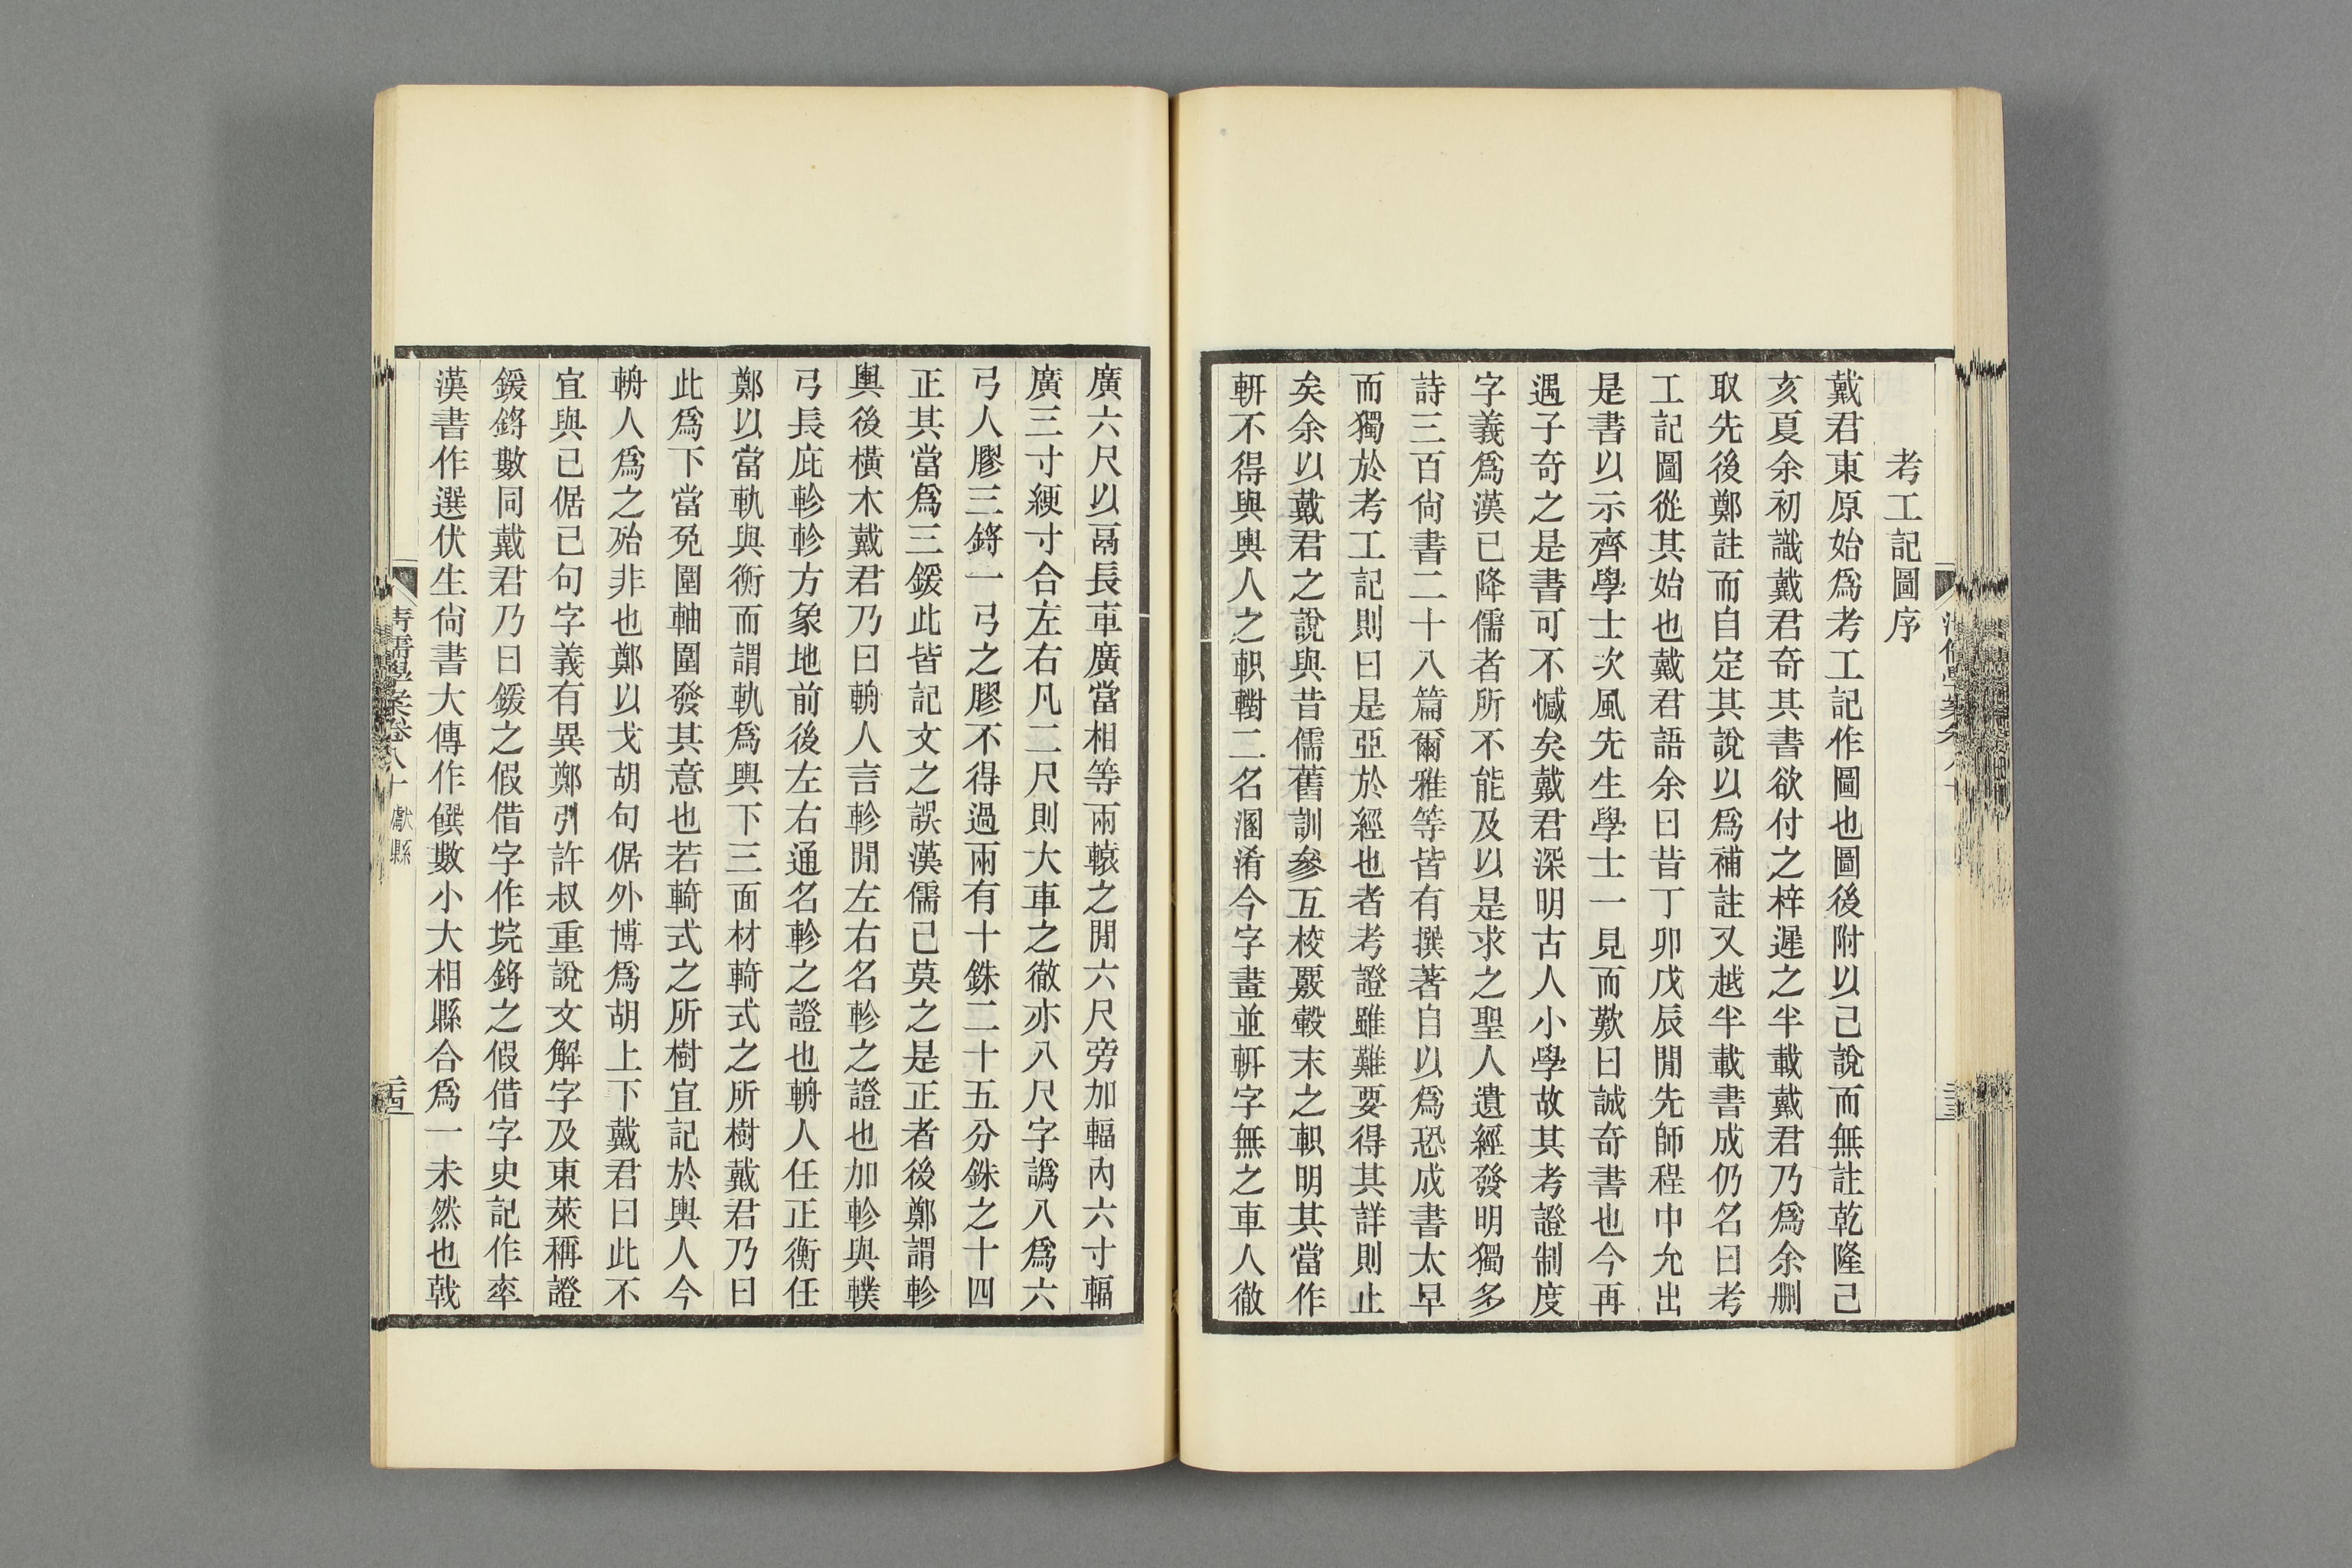 考工記圖序
戴君東原始爲考工記作圖也圖後附以己說而無註乾隆己
亥夏余初識戴君奇其書欲付之梓遲之半載戴君乃爲余删
取先後鄭註而自定其說以爲補註又越半載書成仍名曰考
工記圖從其始也戴君語余曰昔丁卯戊辰閒先師程中允出
是書以示齊學士次風先生學士一見而歎曰誠奇書也今再
遇子奇之是書可不憾矣戴君深明古人小學故其考證制度
字義爲漢已降儒者所不能及以是求之聖人遺經發明獨多
詩三百尙書二十八篇爾雅等皆有撰著自以爲恐成書太早
而獨於考工記則曰是亞於經也者考證雖難要得其詳則止
矣余以戴君之說與昔儒舊訓參互校覈轂末之軹明其當作
軒不得與輿人之軹轛二名溷淆今字書並軒字無之車人徹
廣六尺以鬲長車廣當相等兩轅之閒六尺旁加輻內六寸輻
廣三寸綆寸合左右凡二尺則大車之徹亦八尺字譌八爲六
弓人膠三鋝一弓之膠不得過兩有十銖二十五分銖之十四
正其當爲三鍰此皆記文之誤漢儒已莫之是正者後鄭謂軫
輿後橫木戴君乃曰輈人言軫閒左右名軫之證也加軫與轐
弓長庇軫軫方象地前後左右通名軫之證也輈人任正衡任
鄭以當軌與衡而謂軌爲輿下三面材輢式之所樹戴君乃曰
此爲下當兔圍軸圍發其意也若輢式之所樹宜記於輿人今
輈人爲之殆非也鄭以戈胡句倨外博爲胡上下戴君曰此不
宜與已倨已句字義有異鄭引許叔重說文解字及東萊稱證
鍰鋝數同戴君乃曰鍰之假借字作垸鋝之假借字史記作率
漢書作選伏生尙書大傳作饌數小大相縣合爲一未然也戟
靑儒學案卷八十 獻縣